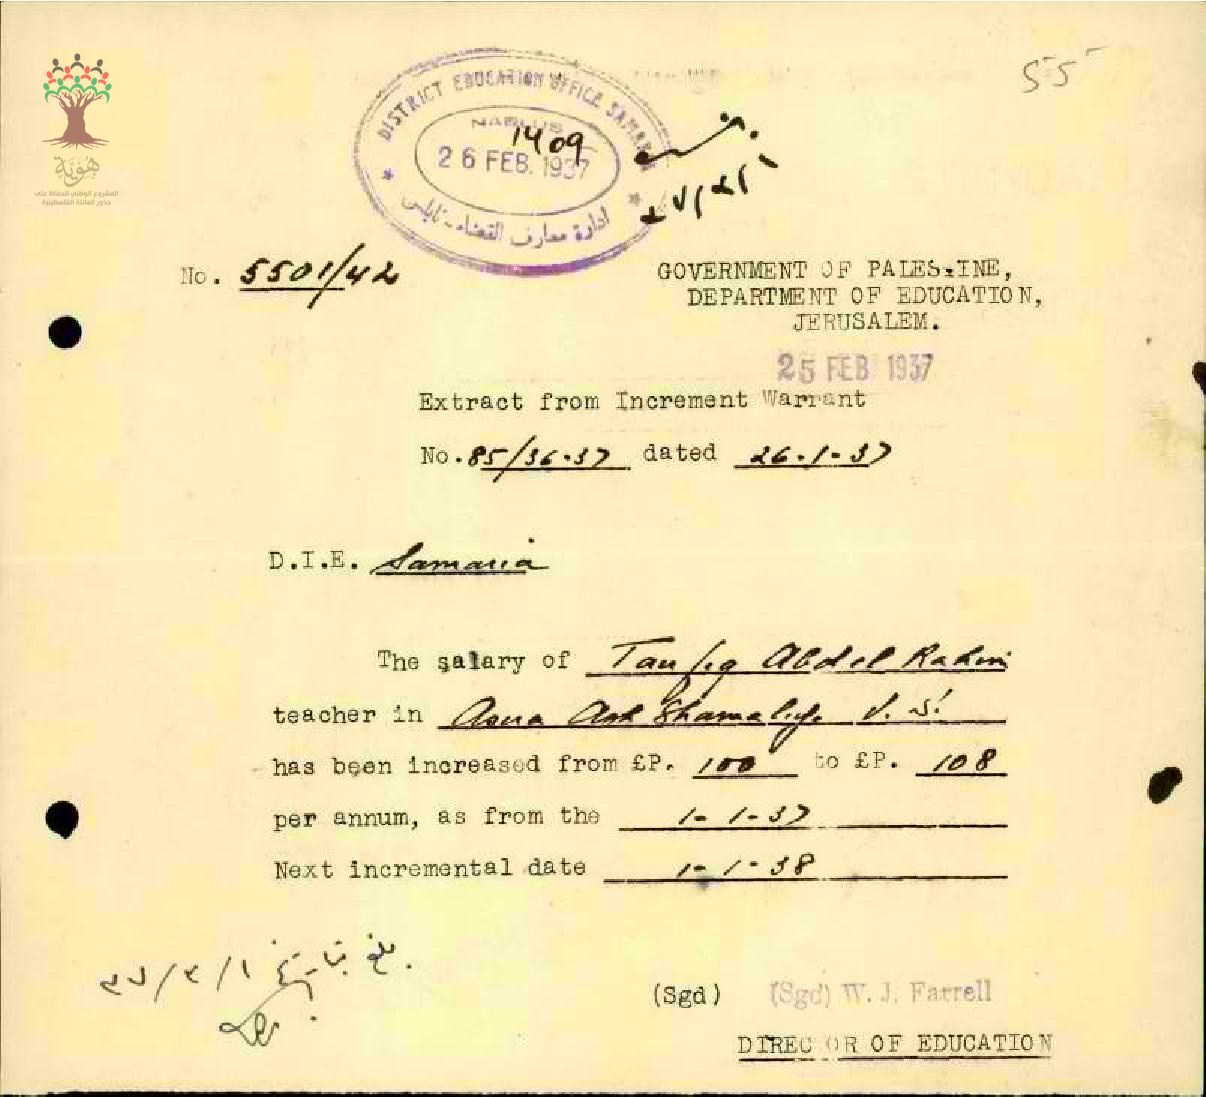 55
هَوِيَّة
المشروع الوطني للحفاظ على
جذور العائلة الفلسطينية
DISTRICT EDUCATION OFFICE SAMARIA
NABLUS
1409
26 FEB. 1937
ادارة معارف القضاء - نابلس
No. 5501/42
GOVERNMENT OF PALESTINE,
DEPARTMENT OF EDUCATION,
JERUSALEM.
25 FEB 1937
Extract from Increment Warrant
No. 85/36-37 dated 26-1-37
D.I.E. Samaria
The salary of Taufiq Abdel Rahim
teacher in Asira Ash Shamaliya V. S.
has been increased from £P. 100 to £P. 108
per annum, as from the 1-1-37
Next incremental date 1-1-38
بلغ بتاريخ ٣٧/٣/١
(Sgd) (Sgd) W. J. Farrell
DIRECTOR OF EDUCATION